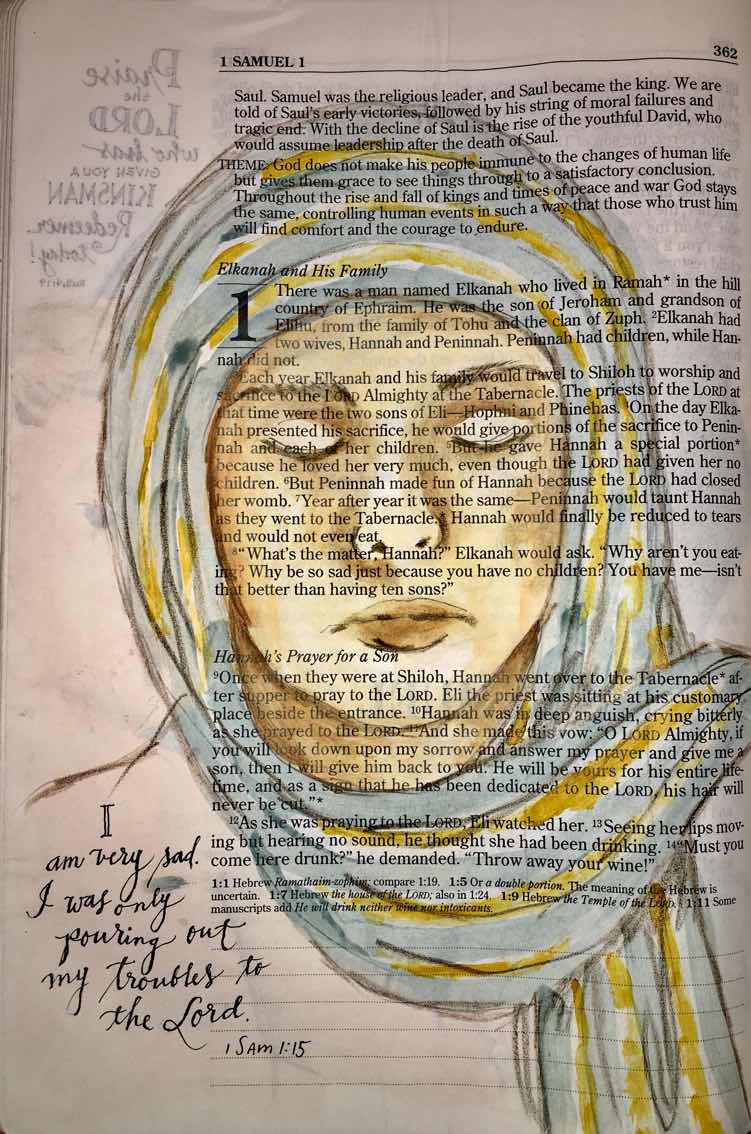 1 SAMUEL 1
362
Saul. Samuel was the religious leader, and Saul became the king. We are
told of Saul's early victories, followed by his string of moral failures and
tragic end. With the decline of Saul is the rise of the youthful David, who
would assume leadership after the death of Saul.
THEME: God does not make his people immune to the changes of human life
but gives them grace to see things through to a satisfactory conclusion.
Throughout the rise and fall of kings and times of peace and war God stays
the same, controlling human events in such a way that those who trust him
will find comfort and the courage to endure.
Elkanah and His Family
1 There was a man named Elkanah who lived in Ramah* in the hill
country of Ephraim. He was the son of Jeroham and grandson of
Elihu, from the family of Tohu and the clan of Zuph. 2Elkanah had
two wives, Hannah and Peninnah. Peninnah had children, while Han-
nah did not.
Each year Elkanah and his family would travel to Shiloh to worship and
sacrifice to the LORD Almighty at the Tabernacle. The priests of the LORD at
that time were the two sons of Eli—Hophni and Phinehas. 4On the day Elka-
nah presented his sacrifice, he would give portions of the sacrifice to Penin-
nah and each of her children. 5But he gave Hannah a special portion*
because he loved her very much, even though the LORD had given her no
children. 6But Peninnah made fun of Hannah because the LORD had closed
her womb. 7Year after year it was the same—Peninnah would taunt Hannah
as they went to the Tabernacle.* Hannah would finally be reduced to tears
and would not even eat.
8"What's the matter, Hannah?" Elkanah would ask. "Why aren't you eat-
ing? Why be so sad just because you have no children? You have me—isn't
that better than having ten sons?"
Hannah's Prayer for a Son
9Once when they were at Shiloh, Hannah went over to the Tabernacle* af-
ter supper to pray to the LORD. Eli the priest was sitting at his customary
place beside the entrance. 10Hannah was in deep anguish, crying bitterly
as she prayed to the LORD. 11And she made this vow: "O LORD Almighty, if
you will look down upon my sorrow and answer my prayer and give me a
son, then I will give him back to you. He will be yours for his entire life-
time, and as a sign that he has been dedicated to the LORD, his hair will
never be cut."*
12As she was praying to the LORD, Eli watched her. 13Seeing her lips mov-
ing but hearing no sound, he thought she had been drinking. 14"Must you
come here drunk?" he demanded. "Throw away your wine!"
1:1 Hebrew Ramathaim-zophim; compare 1:19. 1:5 Or a double portion. The meaning of the Hebrew is
uncertain. 1:7 Hebrew the house of the LORD; also in 1:24. 1:9 Hebrew the Temple of the LORD. 1:11 Some
manuscripts add He will drink neither wine nor intoxicants.
I
am very sad.
I was only
pouring out
my troubles to
the Lord.
1 SAM 1:15
Praise
the
LORD
who has
GIVEN YOU A
KINSMAN
Redeemer
today!